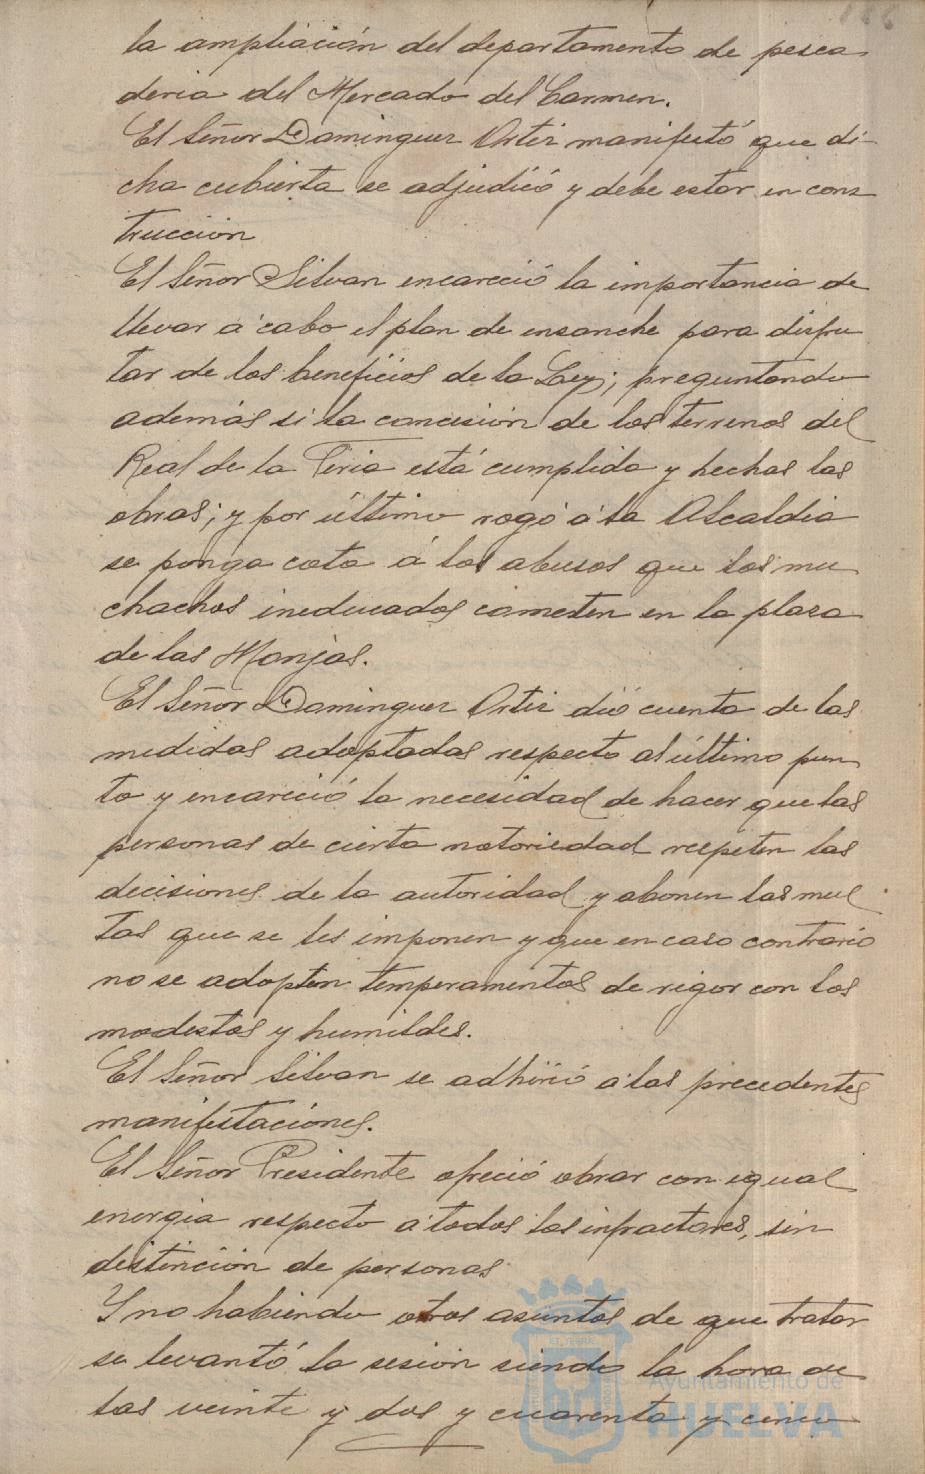 la ampliación del departamento de pesca
deria del Mercado del Carmen.
El Señor Dominguez Ortiz manifestó que di-
cha cubierta se adjudicó y debe estar en cons
trucción
El Señor Silvan encareció la importancia de
llevar á cabo el plan de ensanche para disfru
tar de los beneficios de la Ley; preguntando
además si la concesión de los terrenos del
Real de la Feria está cumplida y hechas las
obras; y por último rogó á la Alcaldia
se ponga coto á los abusos que los mu
chachos ineducados cometen en la plaza
de las Monjas.
El Señor Dominguez Ortiz dió cuenta de las
medidas adoptadas respecto al último pun
to y encareció la necesidad de hacer que las
personas de cierta notoriedad respeten las
decisiones de la autoridad y abonen las mul
tas que se les imponen y que en caso contrario
no se adopten temperamentos de rigor con los
modestos y humildes.
El Señor Silvan se adhirió á las precedentes
manifestaciones.
El Señor Presidente ofreció obrar con igual
energia respecto á todos los infractores, sin
distinción de personas
Y no habiendo otros asuntos de que tratar
se levantó la sesión siendo la hora de
las veinte y dos y cuarenta y cinco
Ayuntamiento de
HUELVA